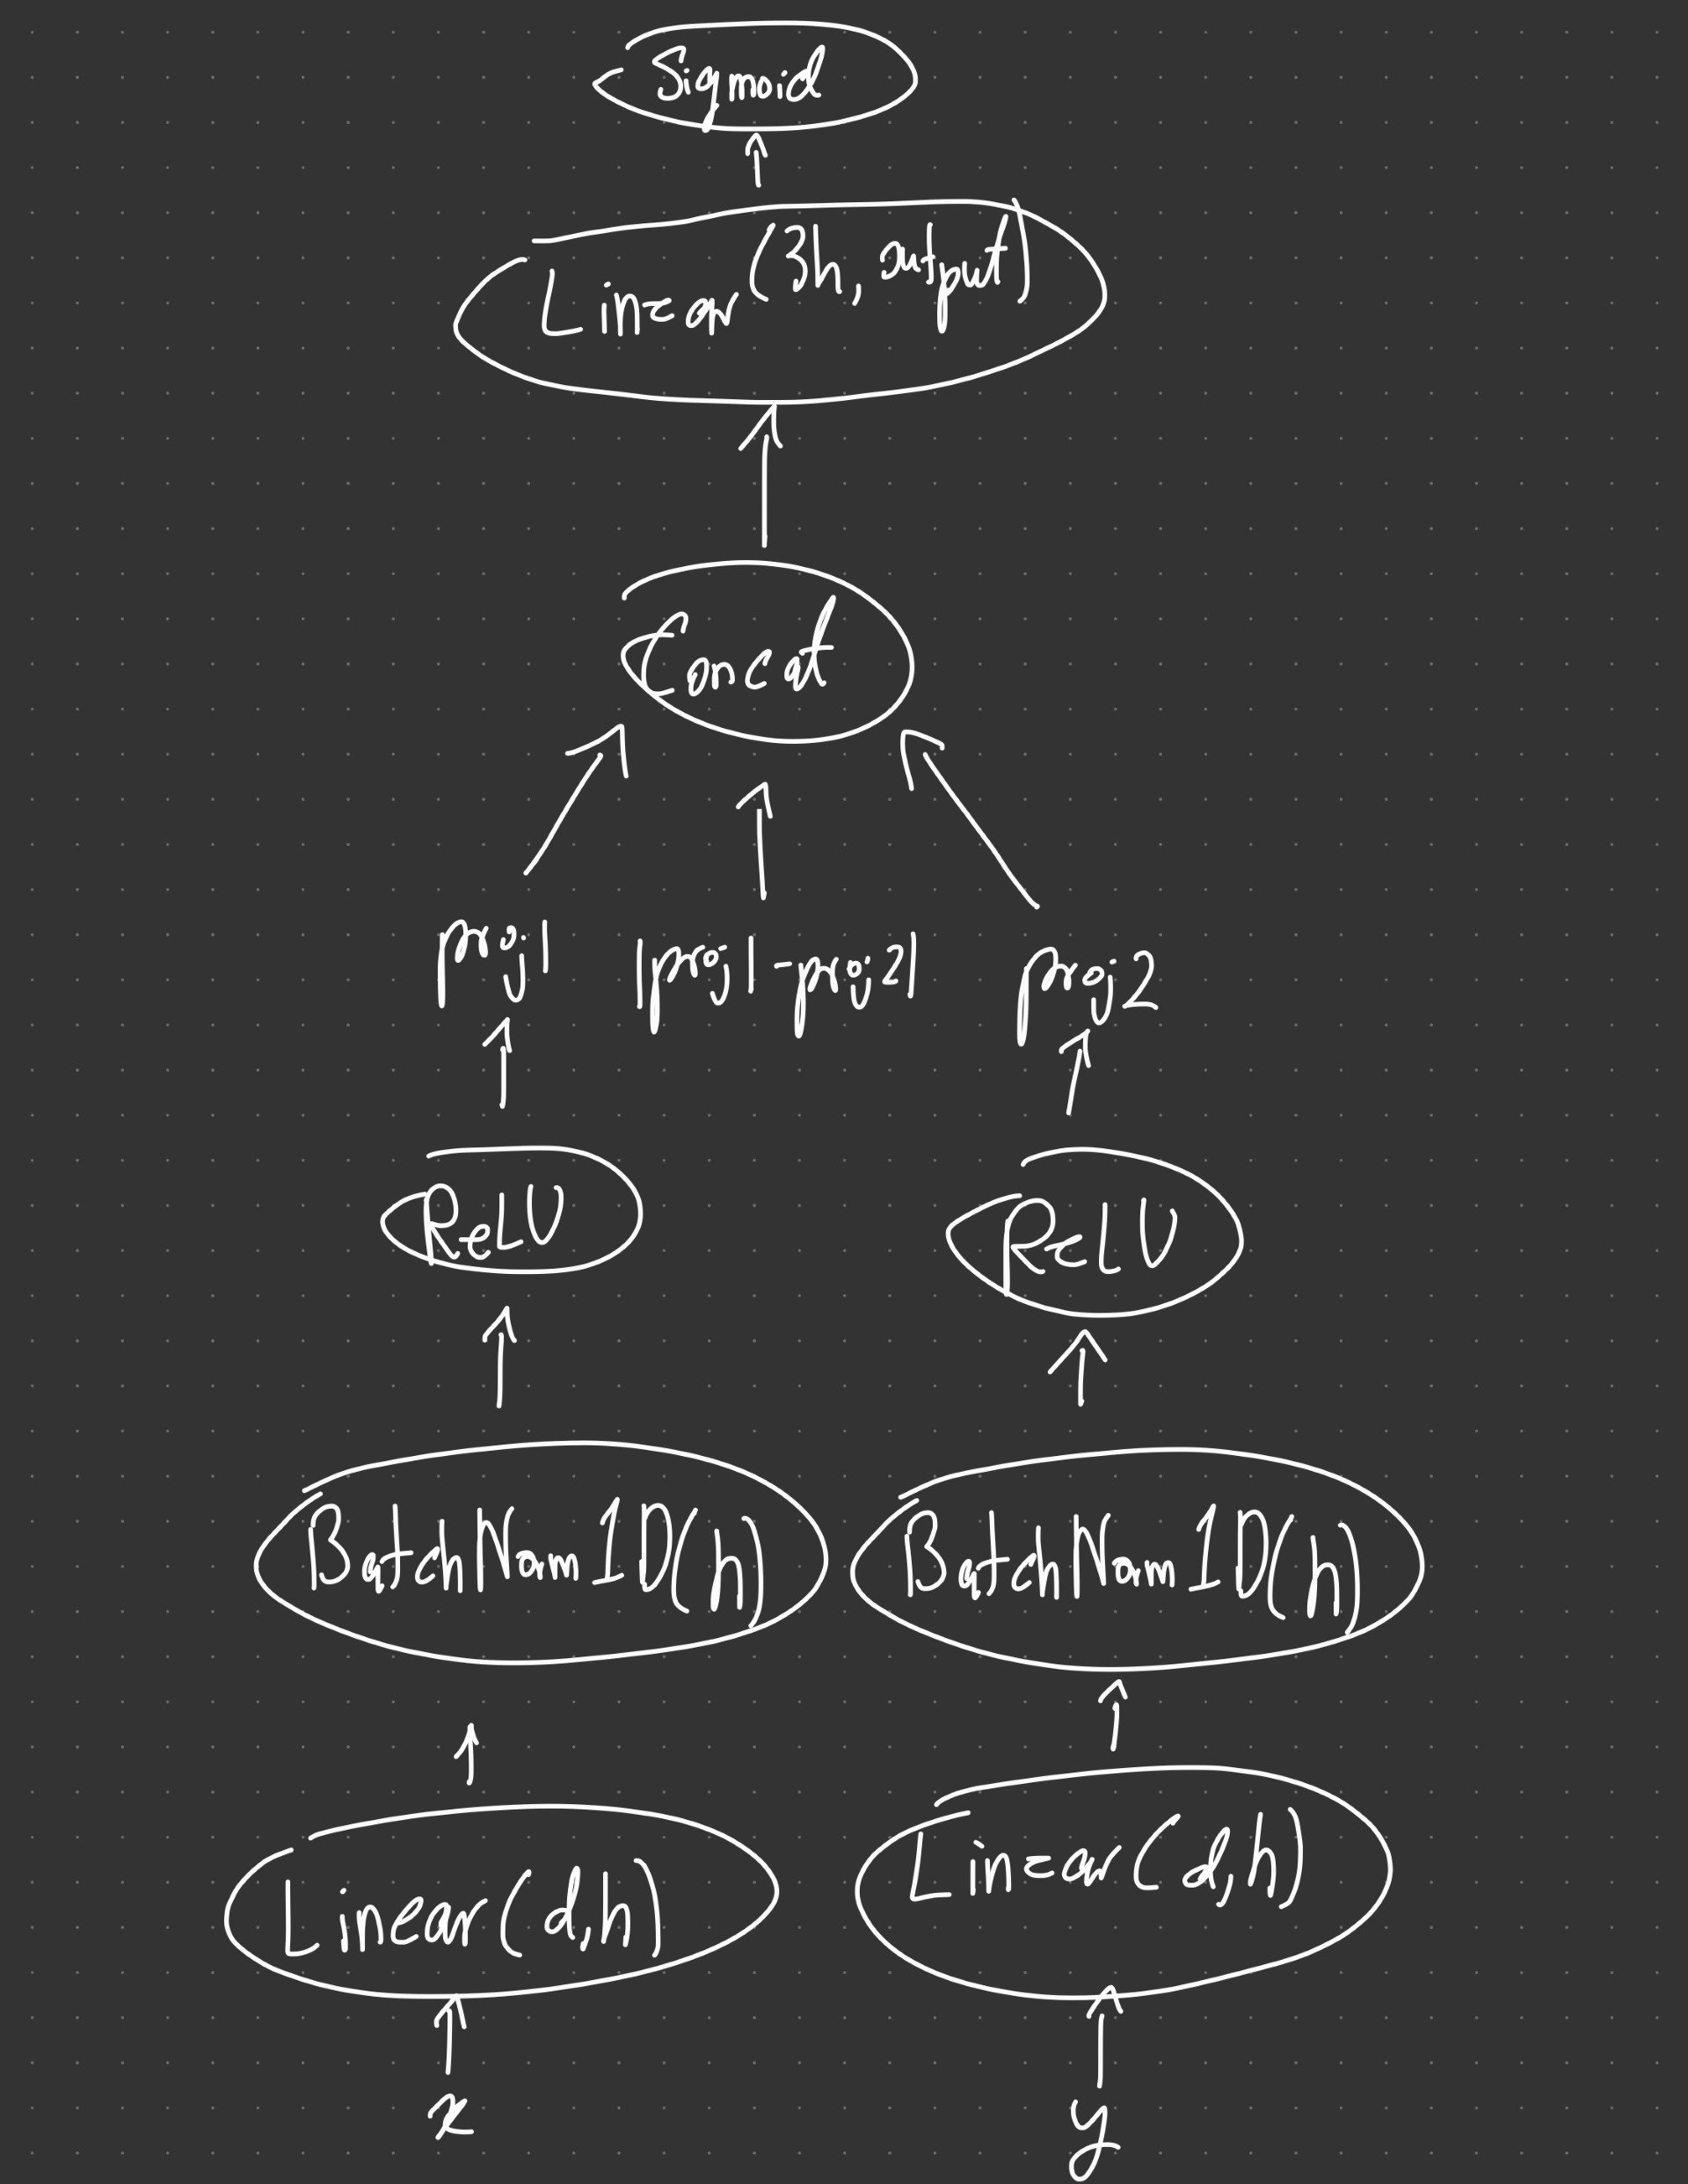 Sigmoid
Linear(3h, output)
Concat
proj1
|proj1 - proj2|
proj2
ReLU
ReLU
BatchNorm1D(h)
BatchNorm1D(h)
Linear(d,h)
Linear(d,h)
x
y